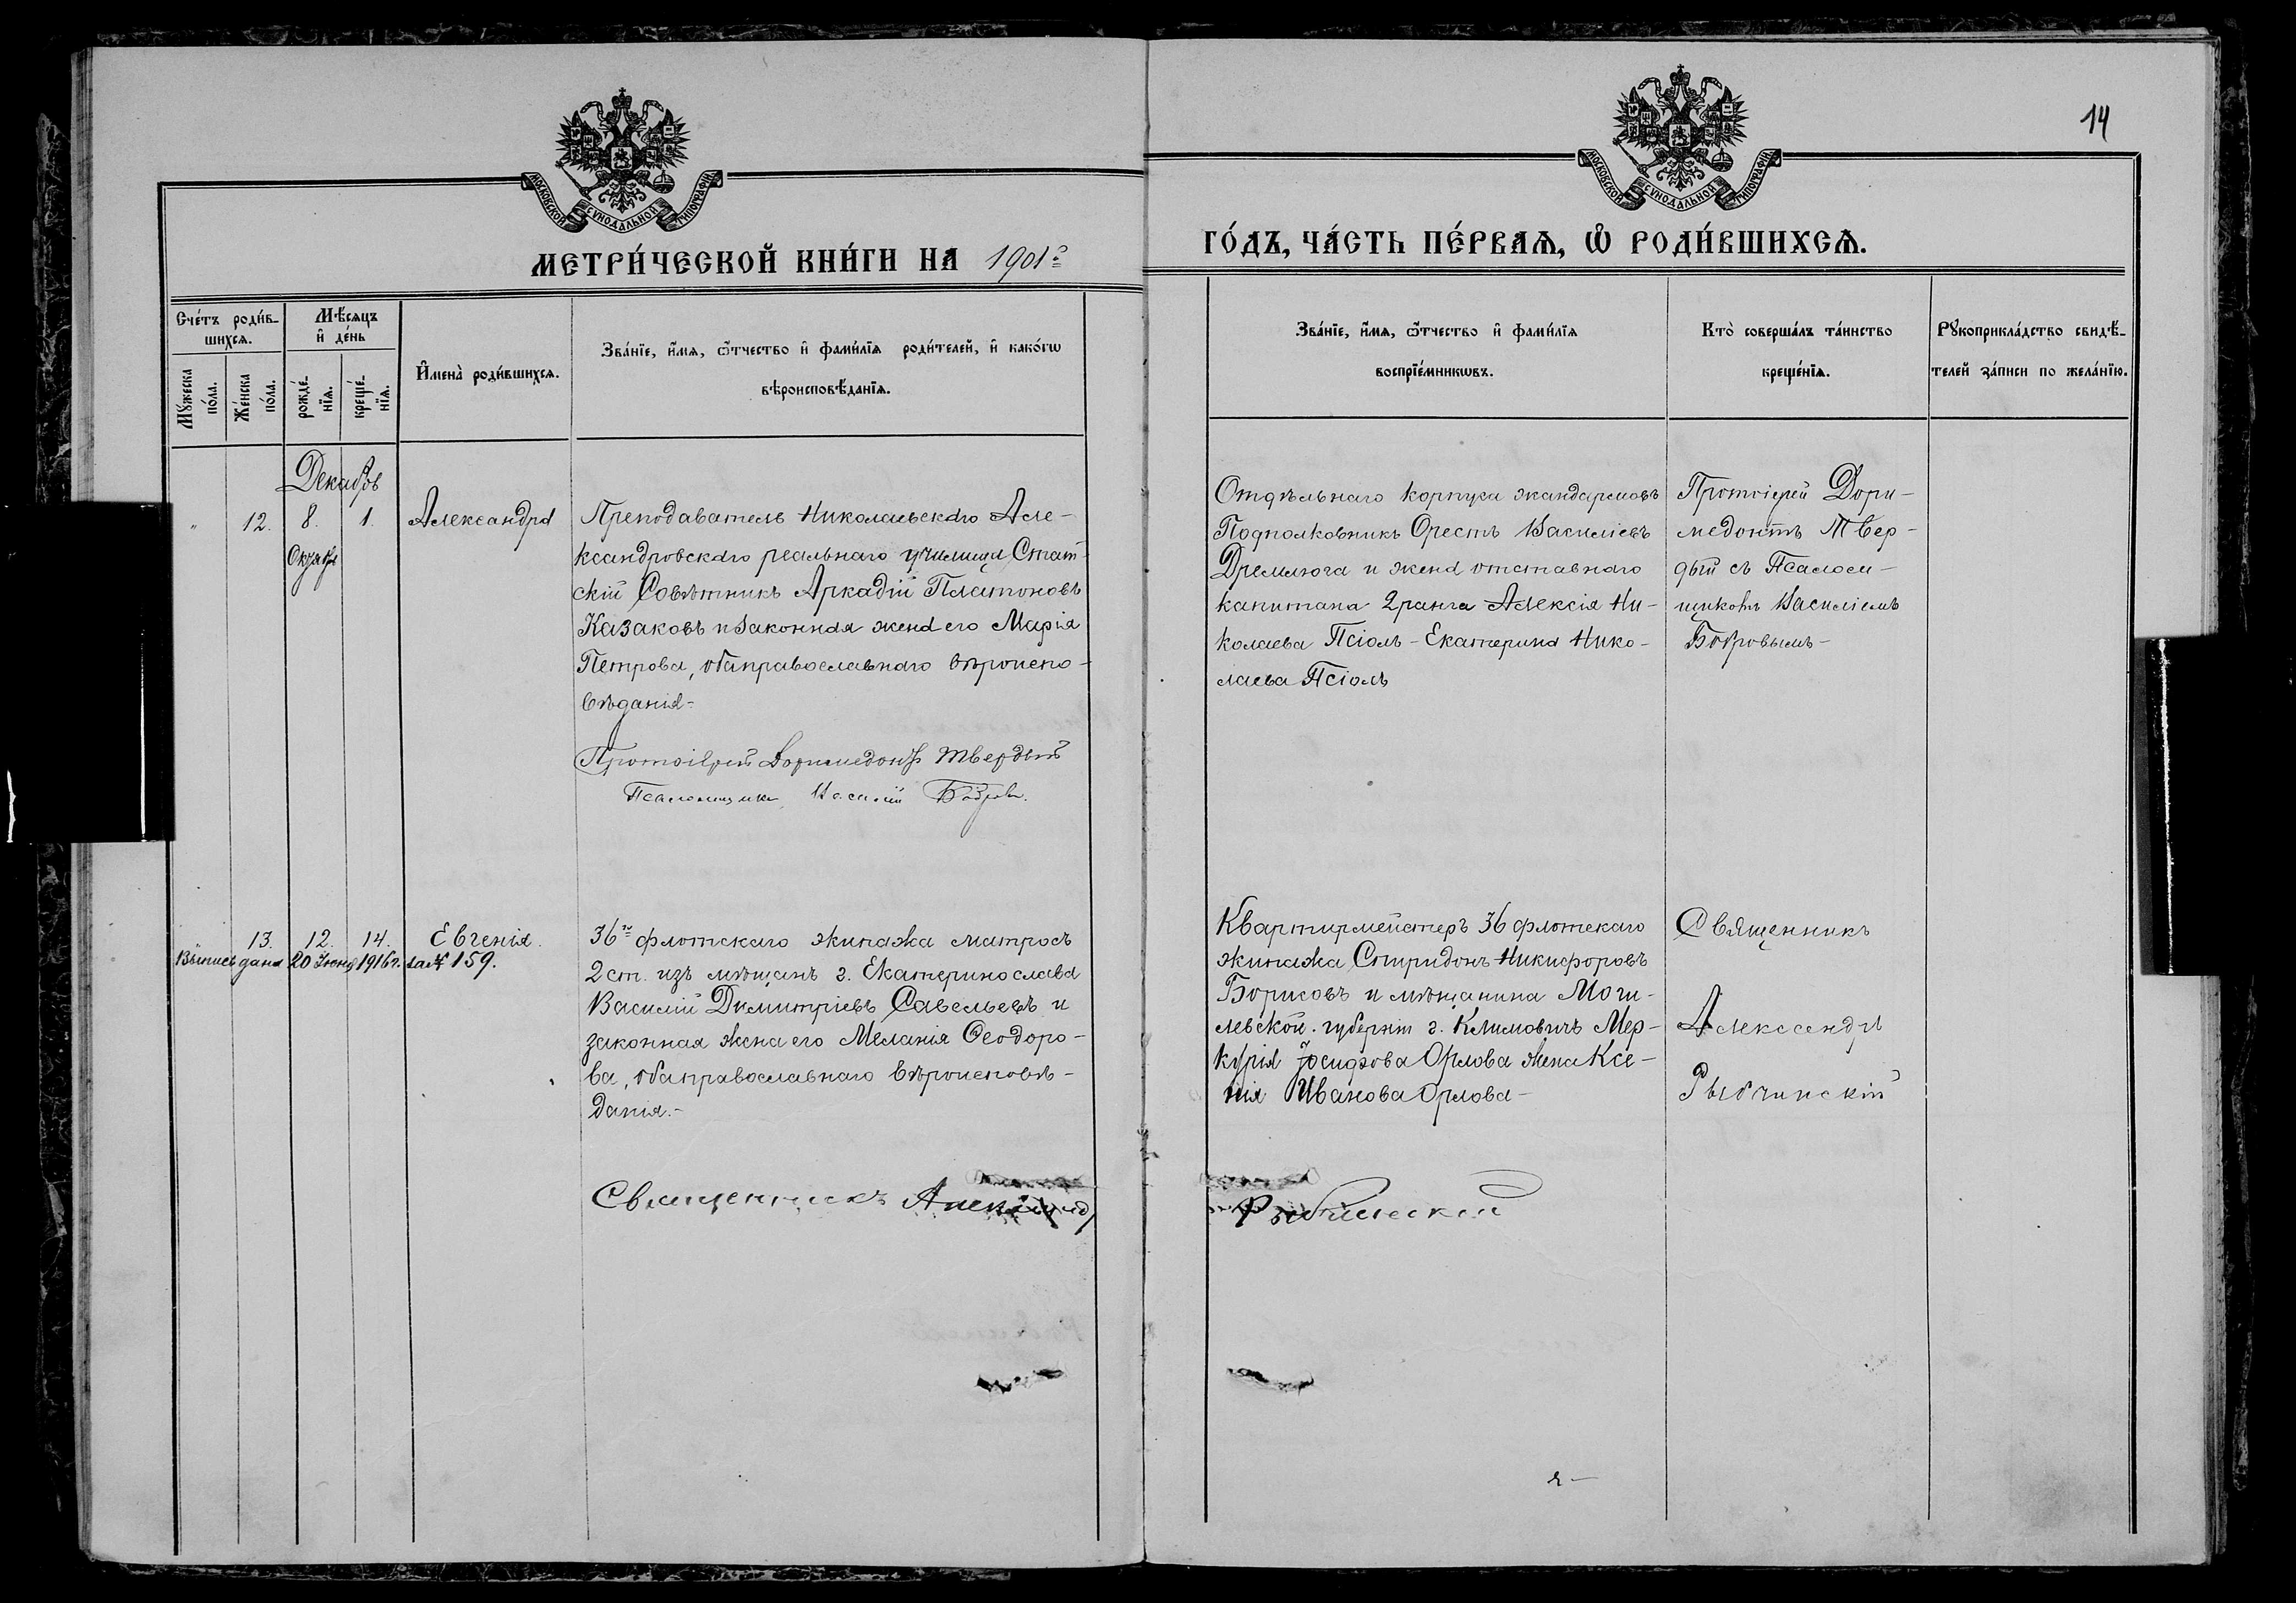 14
МОСКОВСКОЙ СѴНОДАЛЬНОЙ ТИПОГРАФІИ
МОСКОВСКОЙ СѴНОДАЛЬНОЙ ТИПОГРАФІИ
МЕТРИ́ЧЕСКОЙ КНИ́ГИ НА 1901 г.
ГО́ДЪ, ЧА́СТЬ ПЕ́РВАѦ, Ѡ РОДИ́ВШИХСѦ.
Сче́тъ роди́в-
шихсѧ.
Мꙋ́жеска
по́ла.
Же́нска
по́ла.
Мѣ́сѧцъ
и де́нь
рожде́-
нїѧ.
креще́-
нїѧ.
Имена̀ роди́вшихсѧ.
Зва́нїе, и́мѧ, ѻ́тчество и фами́лїѧ роди́телей, и како́гѡ
вѣроисповѣ́данїѧ.
Зва́нїе, и́мѧ, ѻ́тчество и фами́лїѧ
воспрїе́мникѡвъ.
Кто̀ соверша́лъ та́инство
креще́нїѧ.
Рꙋкоприкла́дство свидѣ́-
телей за́писи по жела́нїю.
Декабрь
" 12. 8. 1. Александра
Октября
Преподаватель Николаевскаго Але-
ксандровскаго реальнаго училища Стат-
скій Совѣтникъ Аркадій Платоновъ
Казаковъ и законная жена его Марія
Петрова, оба православнаго вѣроиспо-
вѣданія-
Протоіерей Доримедонтъ Твердый
Псаломщикъ Василій Бобровъ.
Отдѣльнаго корпуса жандармовъ
Подполковникъ Орестъ Василіевъ
Дремлюга и жена отставнаго
капитана 2 ранга Алексія Ни-
колаева Псіолъ - Екатерина Нико-
лаева Псіолъ
Протоіерей Дори-
медонтъ Твер-
дый съ Псалом-
щикомъ Василіемъ
Бобровымъ-
13. 12. 14. Евгенія.
Выпись дана 20 Іюня 1916 г. за № 159.
36го флотскаго экипажа матросъ
2 ст. изъ мѣщанъ г. Екатеринослава
Василій Димитріевъ Савельевъ и
законная жена его Меланія Ѳеодоро-
ва, оба православнаго вѣроисповѣ-
данія.-
Священникъ Александръ
Рыбчинскій
Квартирмейстеръ 36 флотскаго
экипажа Спиридонъ Никифоровъ
Борисовъ и мѣщанина Моги-
левской губерніи г. Климовичъ Мер-
курія Іосифова Орлова жена Ксе-
нія Иванова Орлова-
Священникъ
Александръ
Рыбчинскій